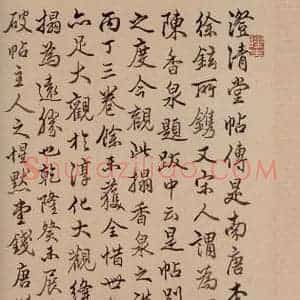 澄清堂帖傳是南唐本
徐鉉所鐫又宋人謂為
陳香泉題跋中云是帖別
之度今觀此搨香泉之
丙丁三卷餘未獲全惜世
亦足大觀於淳化大觀
搨為遠勝也乾隆癸未展
破帖主人之慳默堂錢唐
Shufaziliao.com